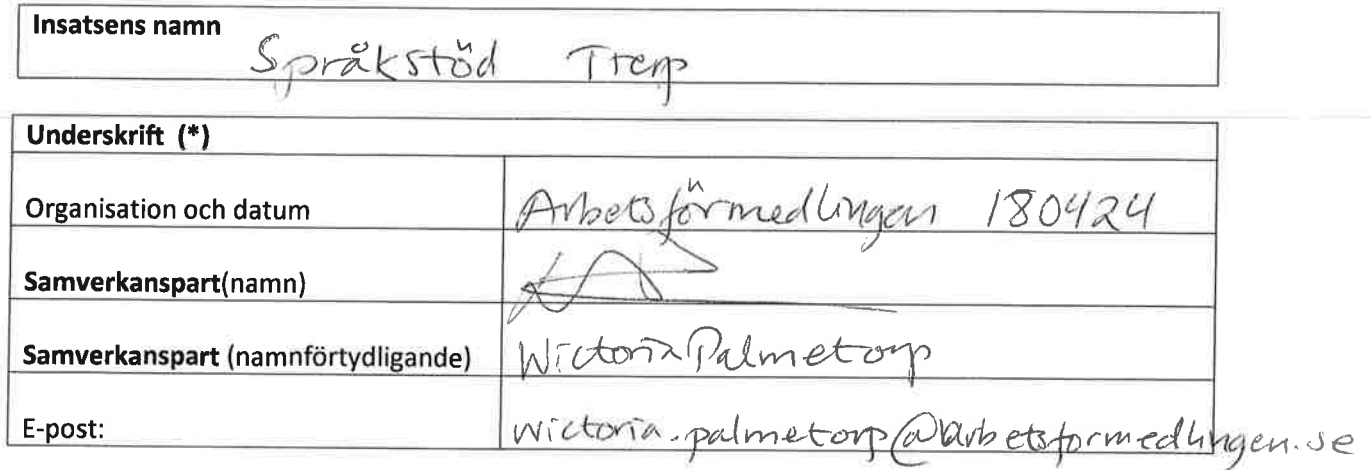 Insatsens namn
Språkstöd Trep
Underskrift (*)
Organisation och datum Arbetsförmedlingen 180424
Samverkanspart(namn)
Samverkanspart (namnförtydligande) Wictoria Palmetorp
E-post: wictoria.palmetorp@arbetsformedlingen.se